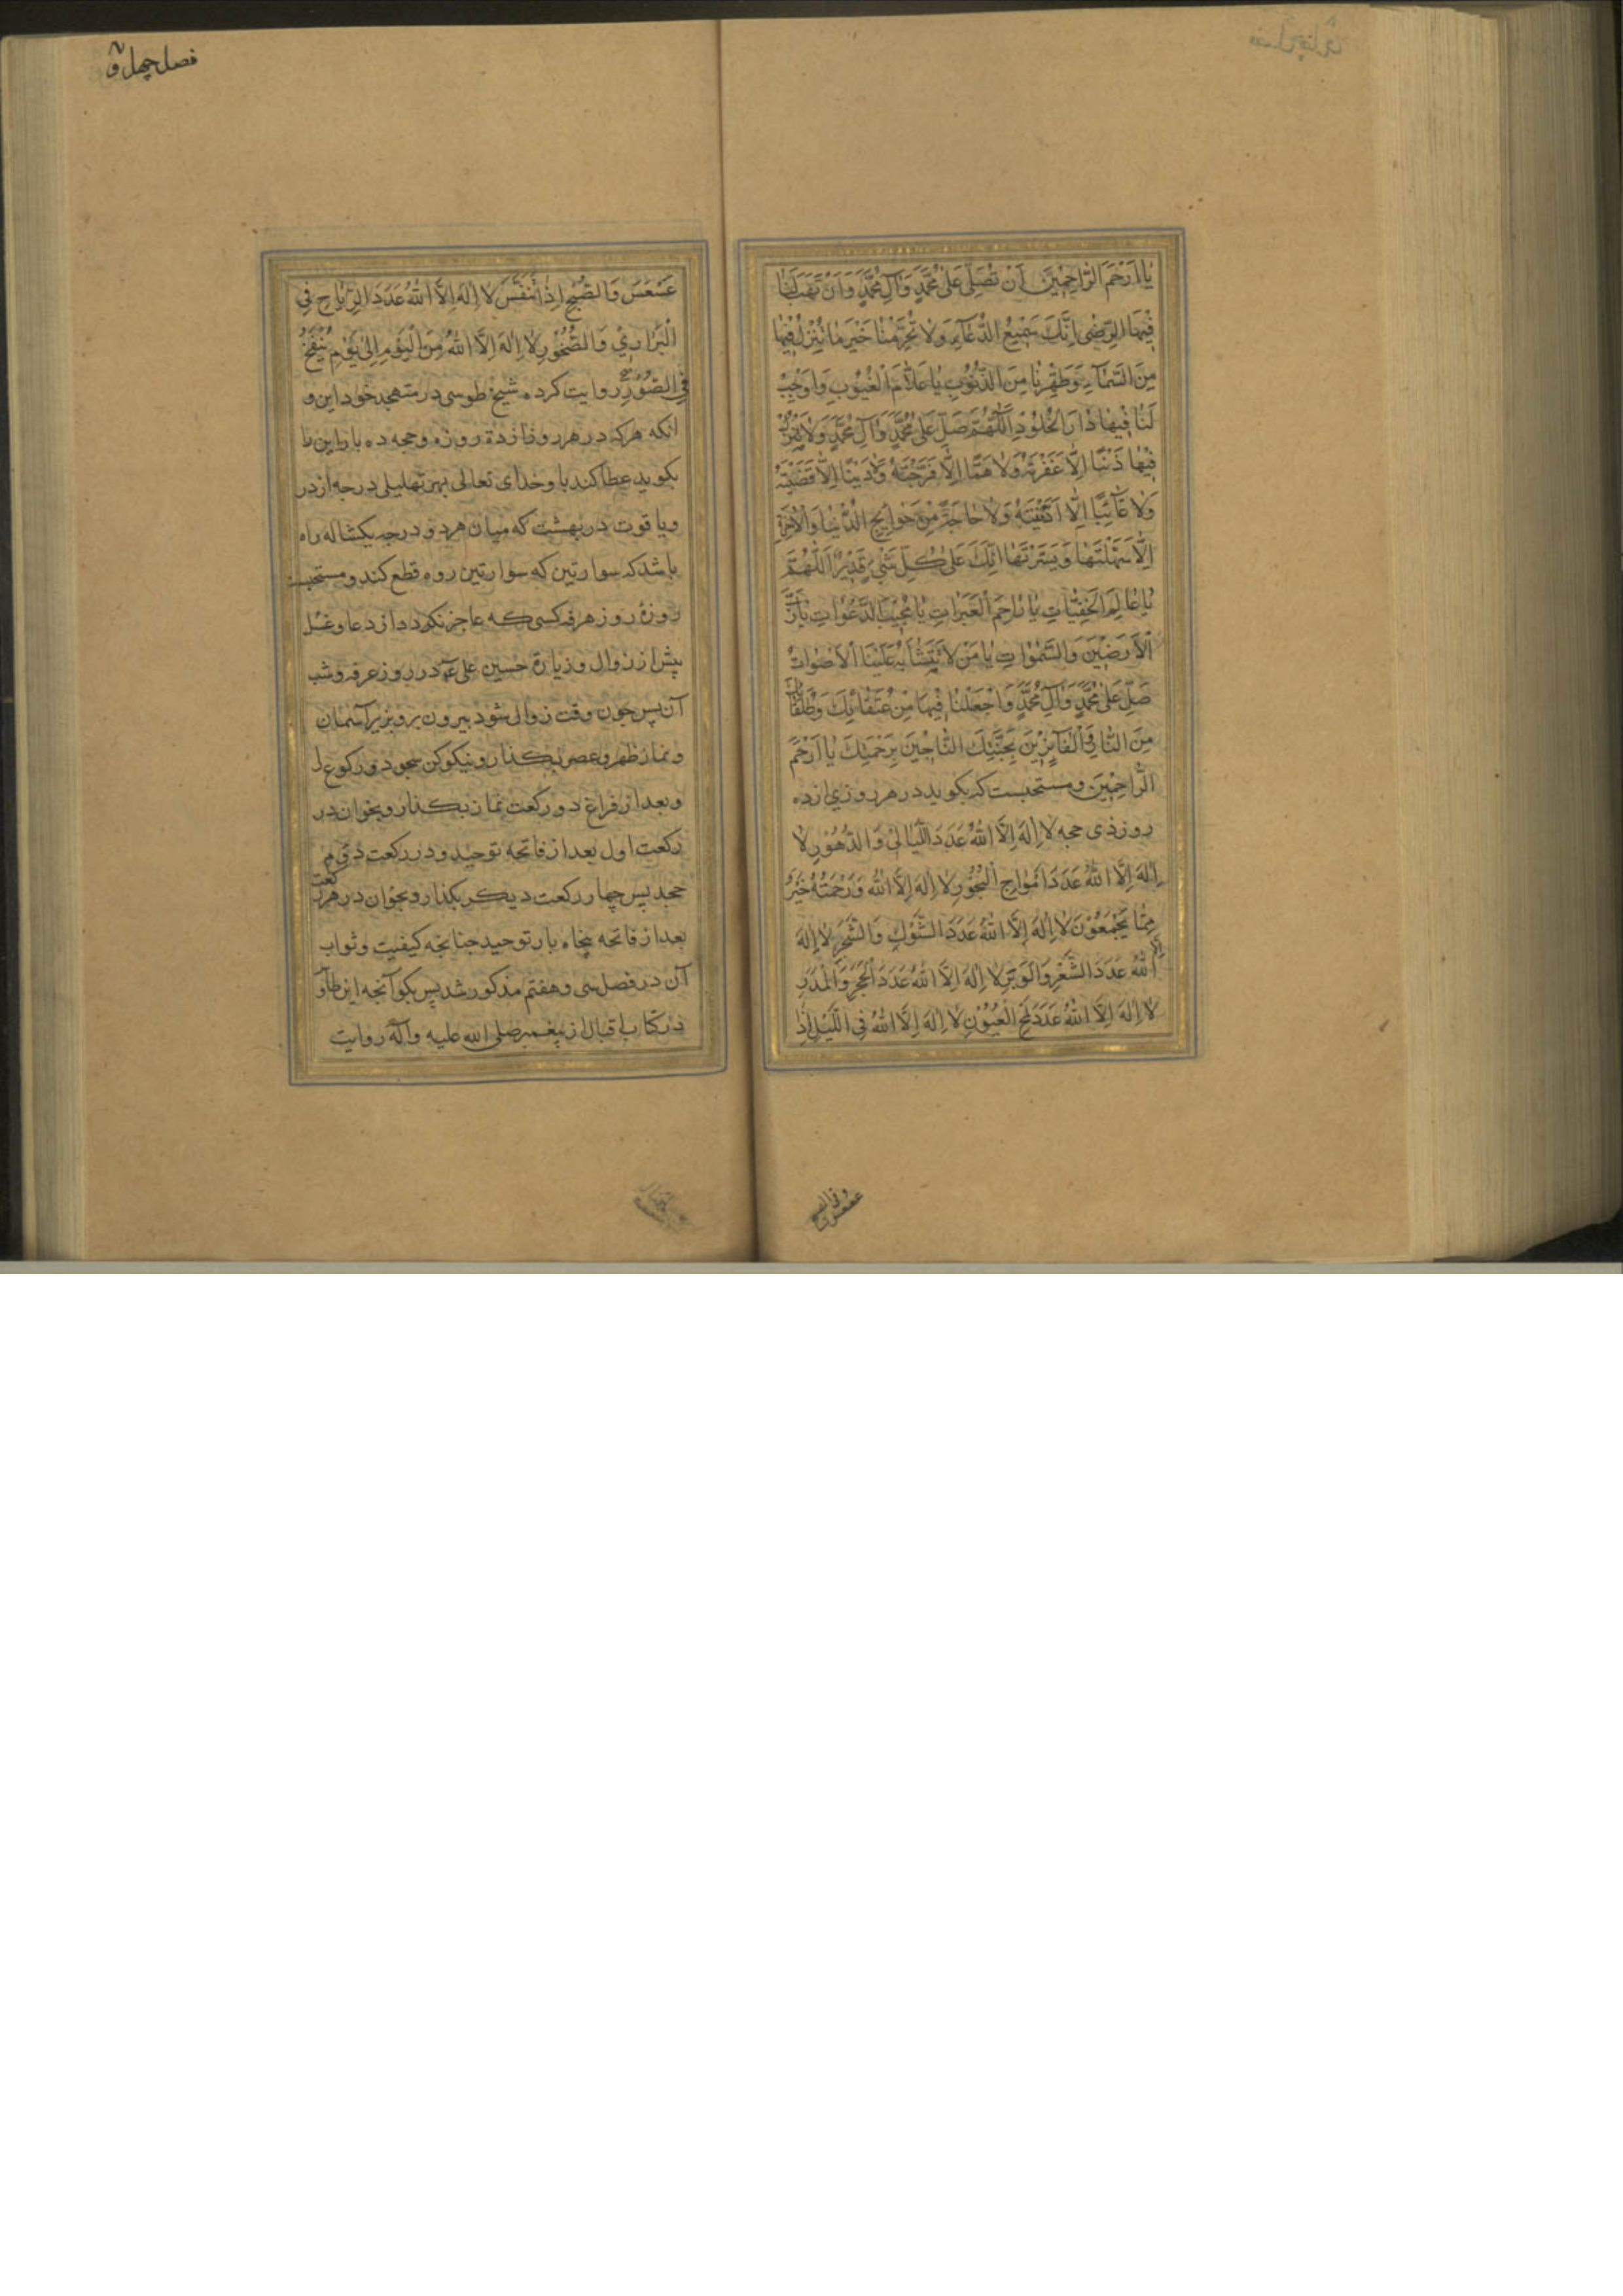 يا ارحم الراحمين ان تصلى على محمد وآل محمد وان تهب لنا
فيها الرضى انك سميع الدعاء ولا تحرمنا خير ما تنزل فيها
من السماء وطهرنا من الذنوب يا علام الغيوب واوجب
لنا فيها دار الخلود اللهم صل على محمد وآل محمد ولا تترك
فيها ذنبا الا غفرته ولا هما الا فرجته ولا دينا الا قضيته
ولا غائبا الا اديته ولا حاجة من حوايج الدنيا والاخرة
الا سهلتها ويسرتها انك على كل شىء قدير اللهم
يا عالم الخفيات يا راحم العبرات يا مجيب الدعوات يا رب
الارضين والسموات يا من لا تتشابه علينا الاصوات
صل على محمد وآل محمد واجعلنا فيها من عتقائك وطلقائك
من النار والفائزين بجنتك الناجين برحمتك يا ارحم
الراحمين ومستحبست كه بكويد در هر روزى از ده
روز ذى حجه لا اله الا الله عدد الليالى والدهور لا
اله الا الله عدد امواج البحور لا اله الا الله ورحمته خير
مما يجمعون لا اله الا الله عدد الشوك والشجر لا اله
الا الله عدد الشعر والوبر لا اله الا الله عدد الحجر والمدر
لا اله الا الله عدد لمح العيون لا اله الا الله فى الليل اذا
فصل چهل و
عسعس والصبح اذا تنفس لا اله الا الله عدد الرياح فى
البرارى والصخور لا اله الا الله من اليوم الى يوم ينفخ
فى الصور روايت كرده شيخ طوسى در متهجد خود اين و
انكه هركه در هر روز از ده روزه وحجه ده بار اين را
بكويد عطا كند باو خداى تعالى بهر تهليلى درجه از در
وياقوت در بهشت كه ميان هر دو درجه يكشاله راه
باشد كه سوارتين كه سوارتين روه قطع كند ومستحبست
روزهٔ روز عرفه كسى كه عاجز نكردد از دعا وغسل
پيش از زوال وزيارة حسين على ع در روز عرفه وشب
آن پس چون وقت زوال شود بيرون رو بزير آسمان
ونماز ظهر وعصر بكذار ونيكو كن سجود وركوع را
وبعد از فراغ دو ركعت نماز بكذار وبخوان در
ركعت اول بعد از فاتحه توحيد ودر ركعت دوم
جحد پس چهار ركعت ديكر بكذار وبخوان در هر ركعت
بعد از فاتحه پنجاه بار توحيد چنانچه كيفيت وثواب
آن در فصل سى وهفتم مذكور شد پس بكو آنچه ابن طاو
در كتاب اقبال از پيغمبر صلى الله عليه وآله روايت